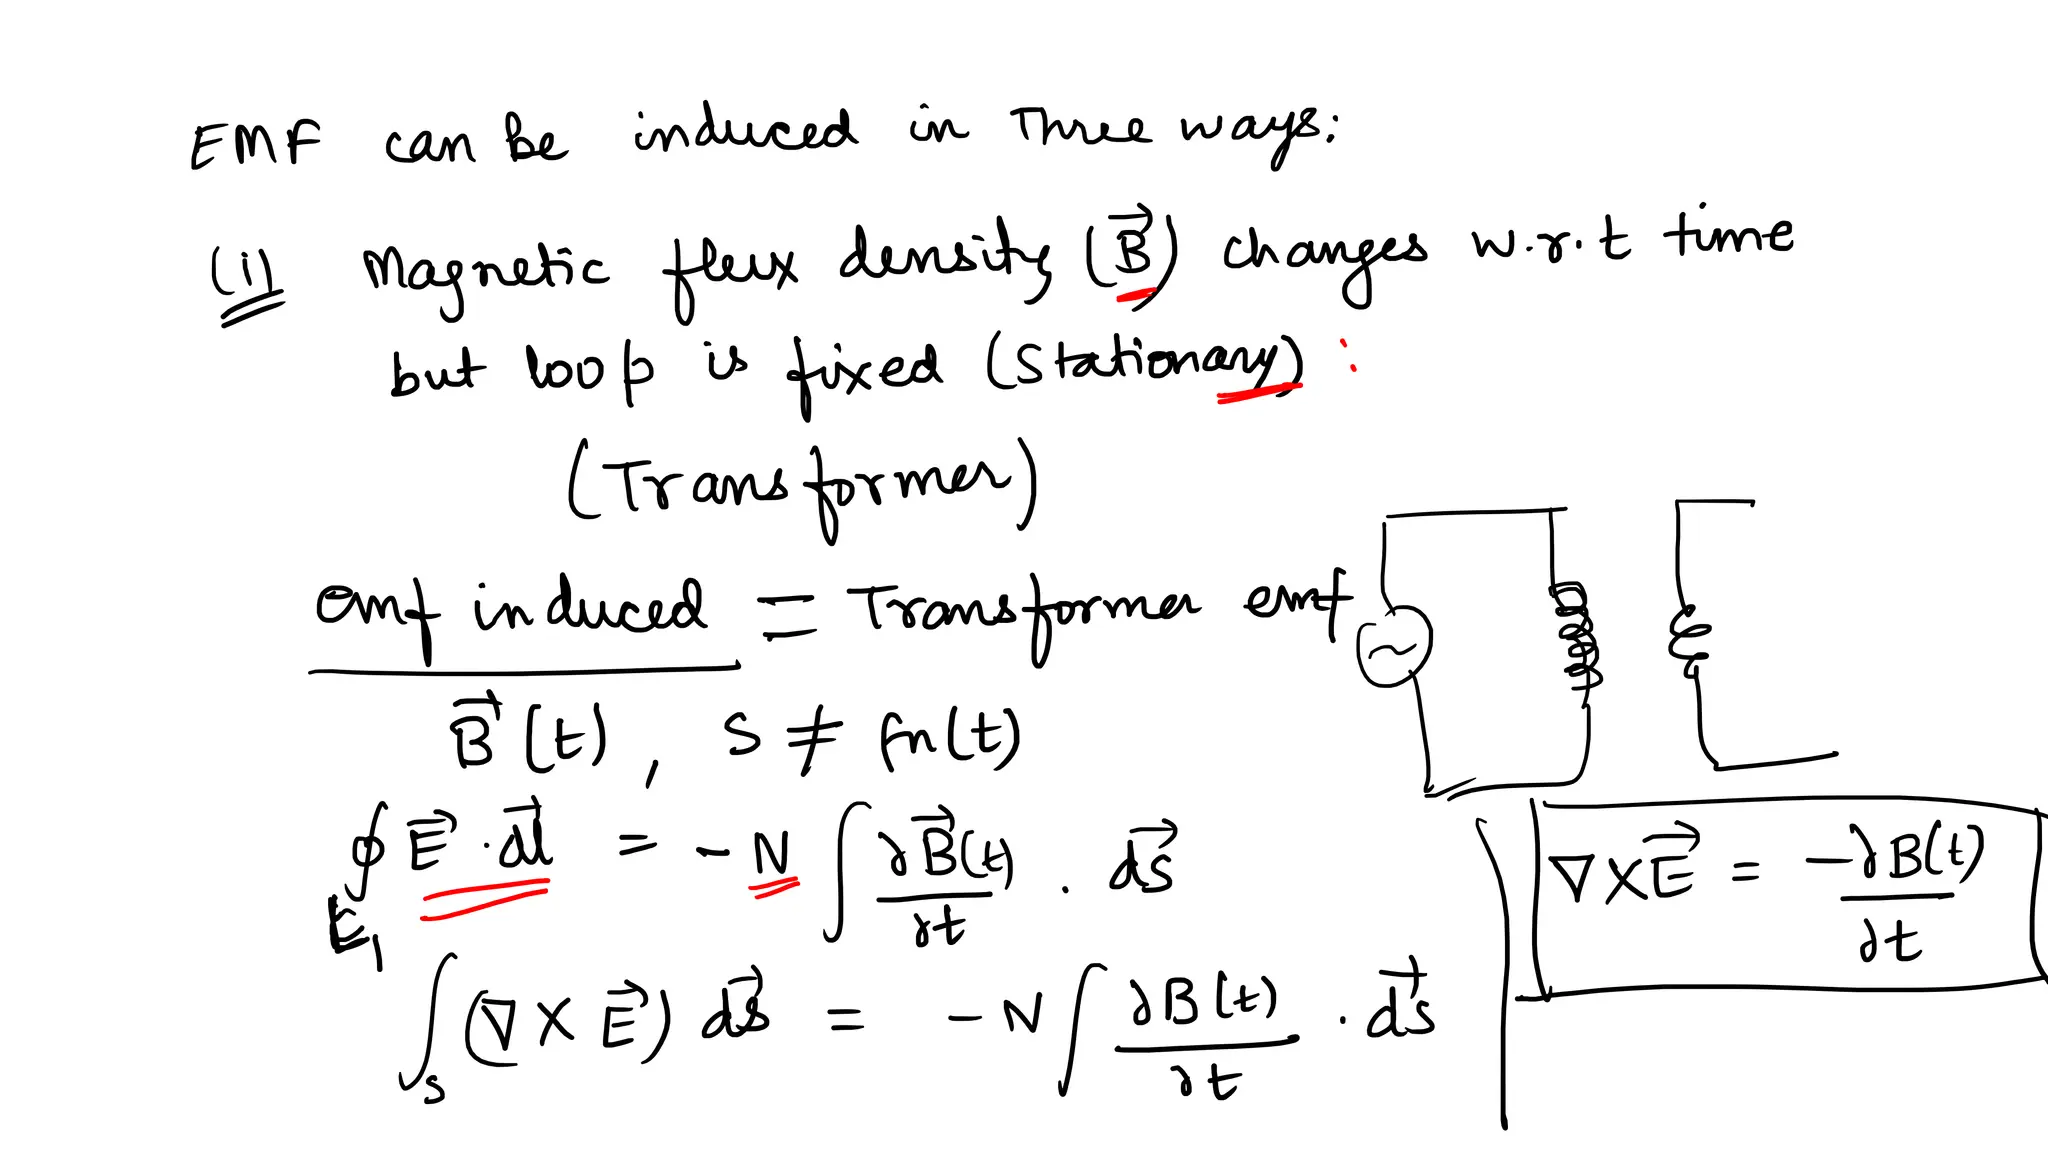 EMF can be induced in Three ways:
(i) Magnetic flux density (B⃗) changes w.r.t time
but loop is fixed (Stationary) :
(Transformer)
emf induced = Transformer emf
B⃗(t), S ≠ fn(t)
∮ E⃗ · dl⃗ = - N ∫ ∂B⃗(t)/∂t · ds⃗
E₁
∫_S (∇ × E⃗) ds⃗ = - N ∫ ∂B(t)/∂t · ds⃗
∇ × E⃗ = -∂B(t)/∂t